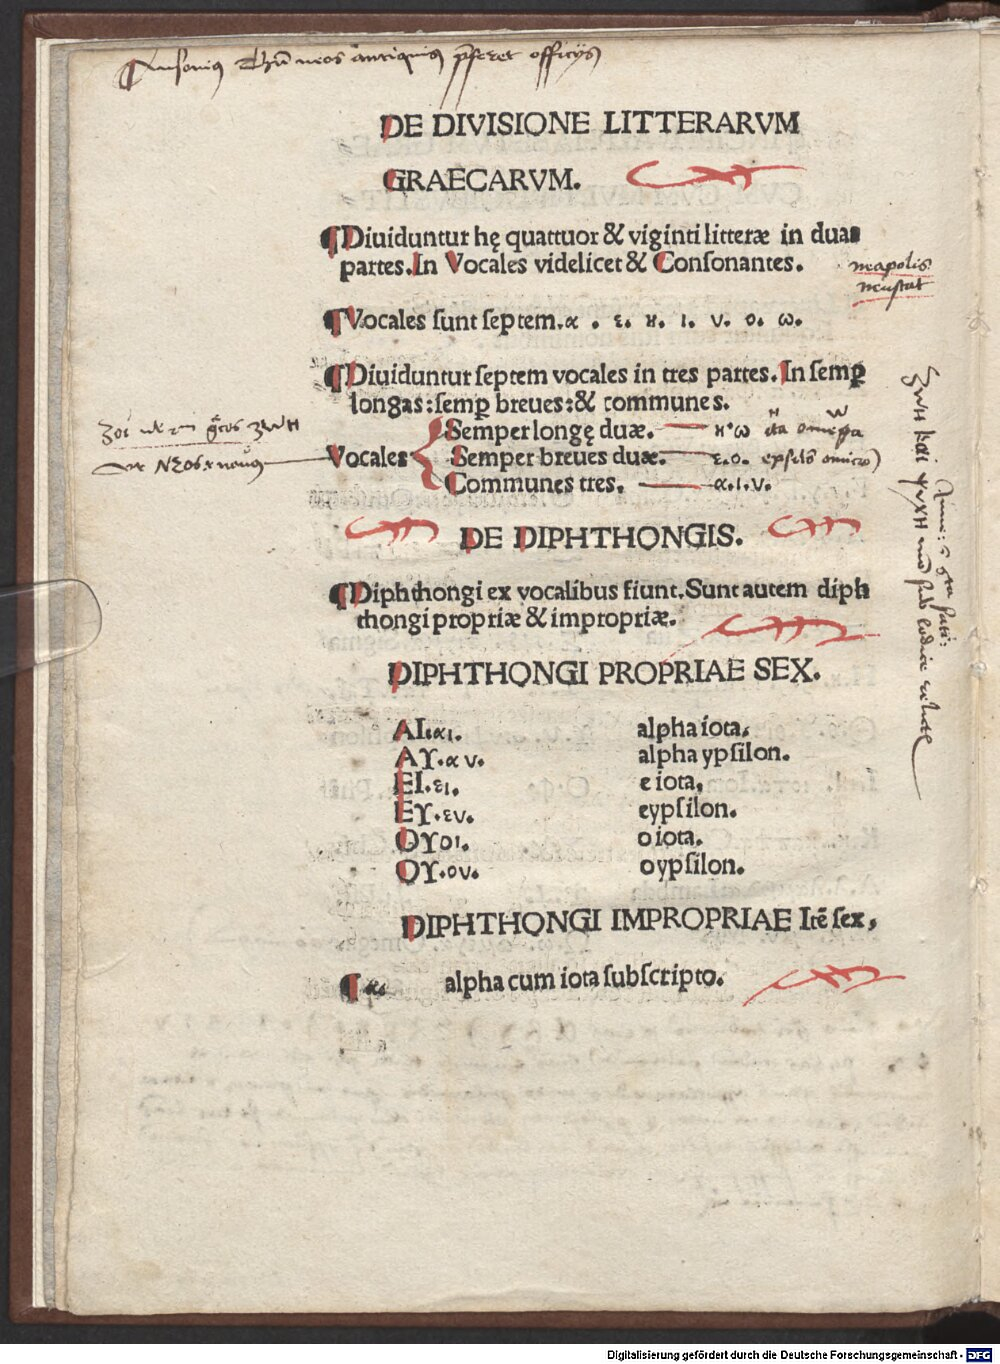 Ausonius neos antiquius officijs
DE DIVISIONE LITTERARVM
GRAECARVM.
¶Diuiduntur hę quattuor & viginti litteræ in duas
partes. In Vocales videlicet & Consonantes.
neapolis
neustat
¶Vocales sunt septem. α . ε. η. ι. υ. ο. ω.
¶Diuiduntur septem vocales in tres partes. In semꝑ
longas: semꝑ breues: & communes.
Vocales
Semper longę duæ. η·ω ita omega
Semper breues duæ. ε.ο.
Communes tres. α.ι.υ.
DE DIPHTHONGIS.
¶Diphthongi ex vocalibus fiunt. Sunt autem diph
thongi propriæ & impropriæ.
DIPHTHONGI PROPRIAE SEX.
AI.αι. alpha iota.
Aϒ.αυ. alpha ypsilon.
EI.ει. e iota.
Eϒ.ευ. eypsilon.
Oϒοι. o iota.
Oϒ.ου. oypsilon.
DIPHTHONGI IMPROPRIAE Itẽ sex,
¶ alpha cum iota subscripto.
Digitalisierung gefördert durch die Deutsche Forschungsgemeinschaft - DFG